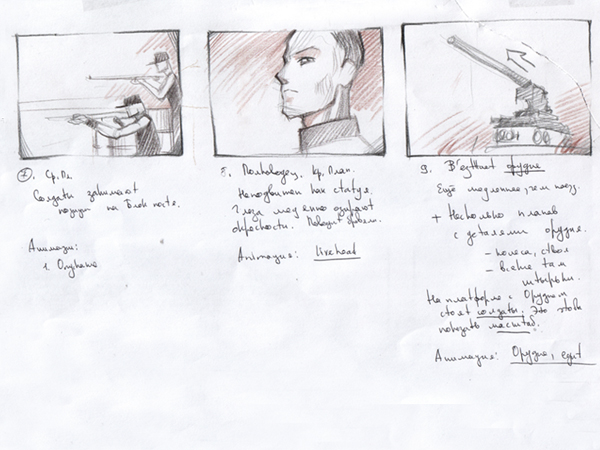 7. Ср. Пл.
Солдаты занимают
позиции на Блок посте.
Анимации:
1.
8. Полководец. Кр. План.
Неподвижен как статуя.
Глаза медленно озирают
окрестности. Поводит
Анимация: livehead
9. Въезжает орудие
Ещё медленнее, чем поезд.
+ Несколько планов
с деталями орудия.
- колеса, ствол
- всякие там
штырьки.
На платформе с Орудием
стоят солдаты. Это чтобы
показать масштаб.
Анимация: Орудие, едет